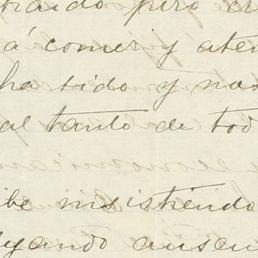 pero
á comer y aten
ha sido y nos
al tanto de tod
be insistiendo
yando ausen